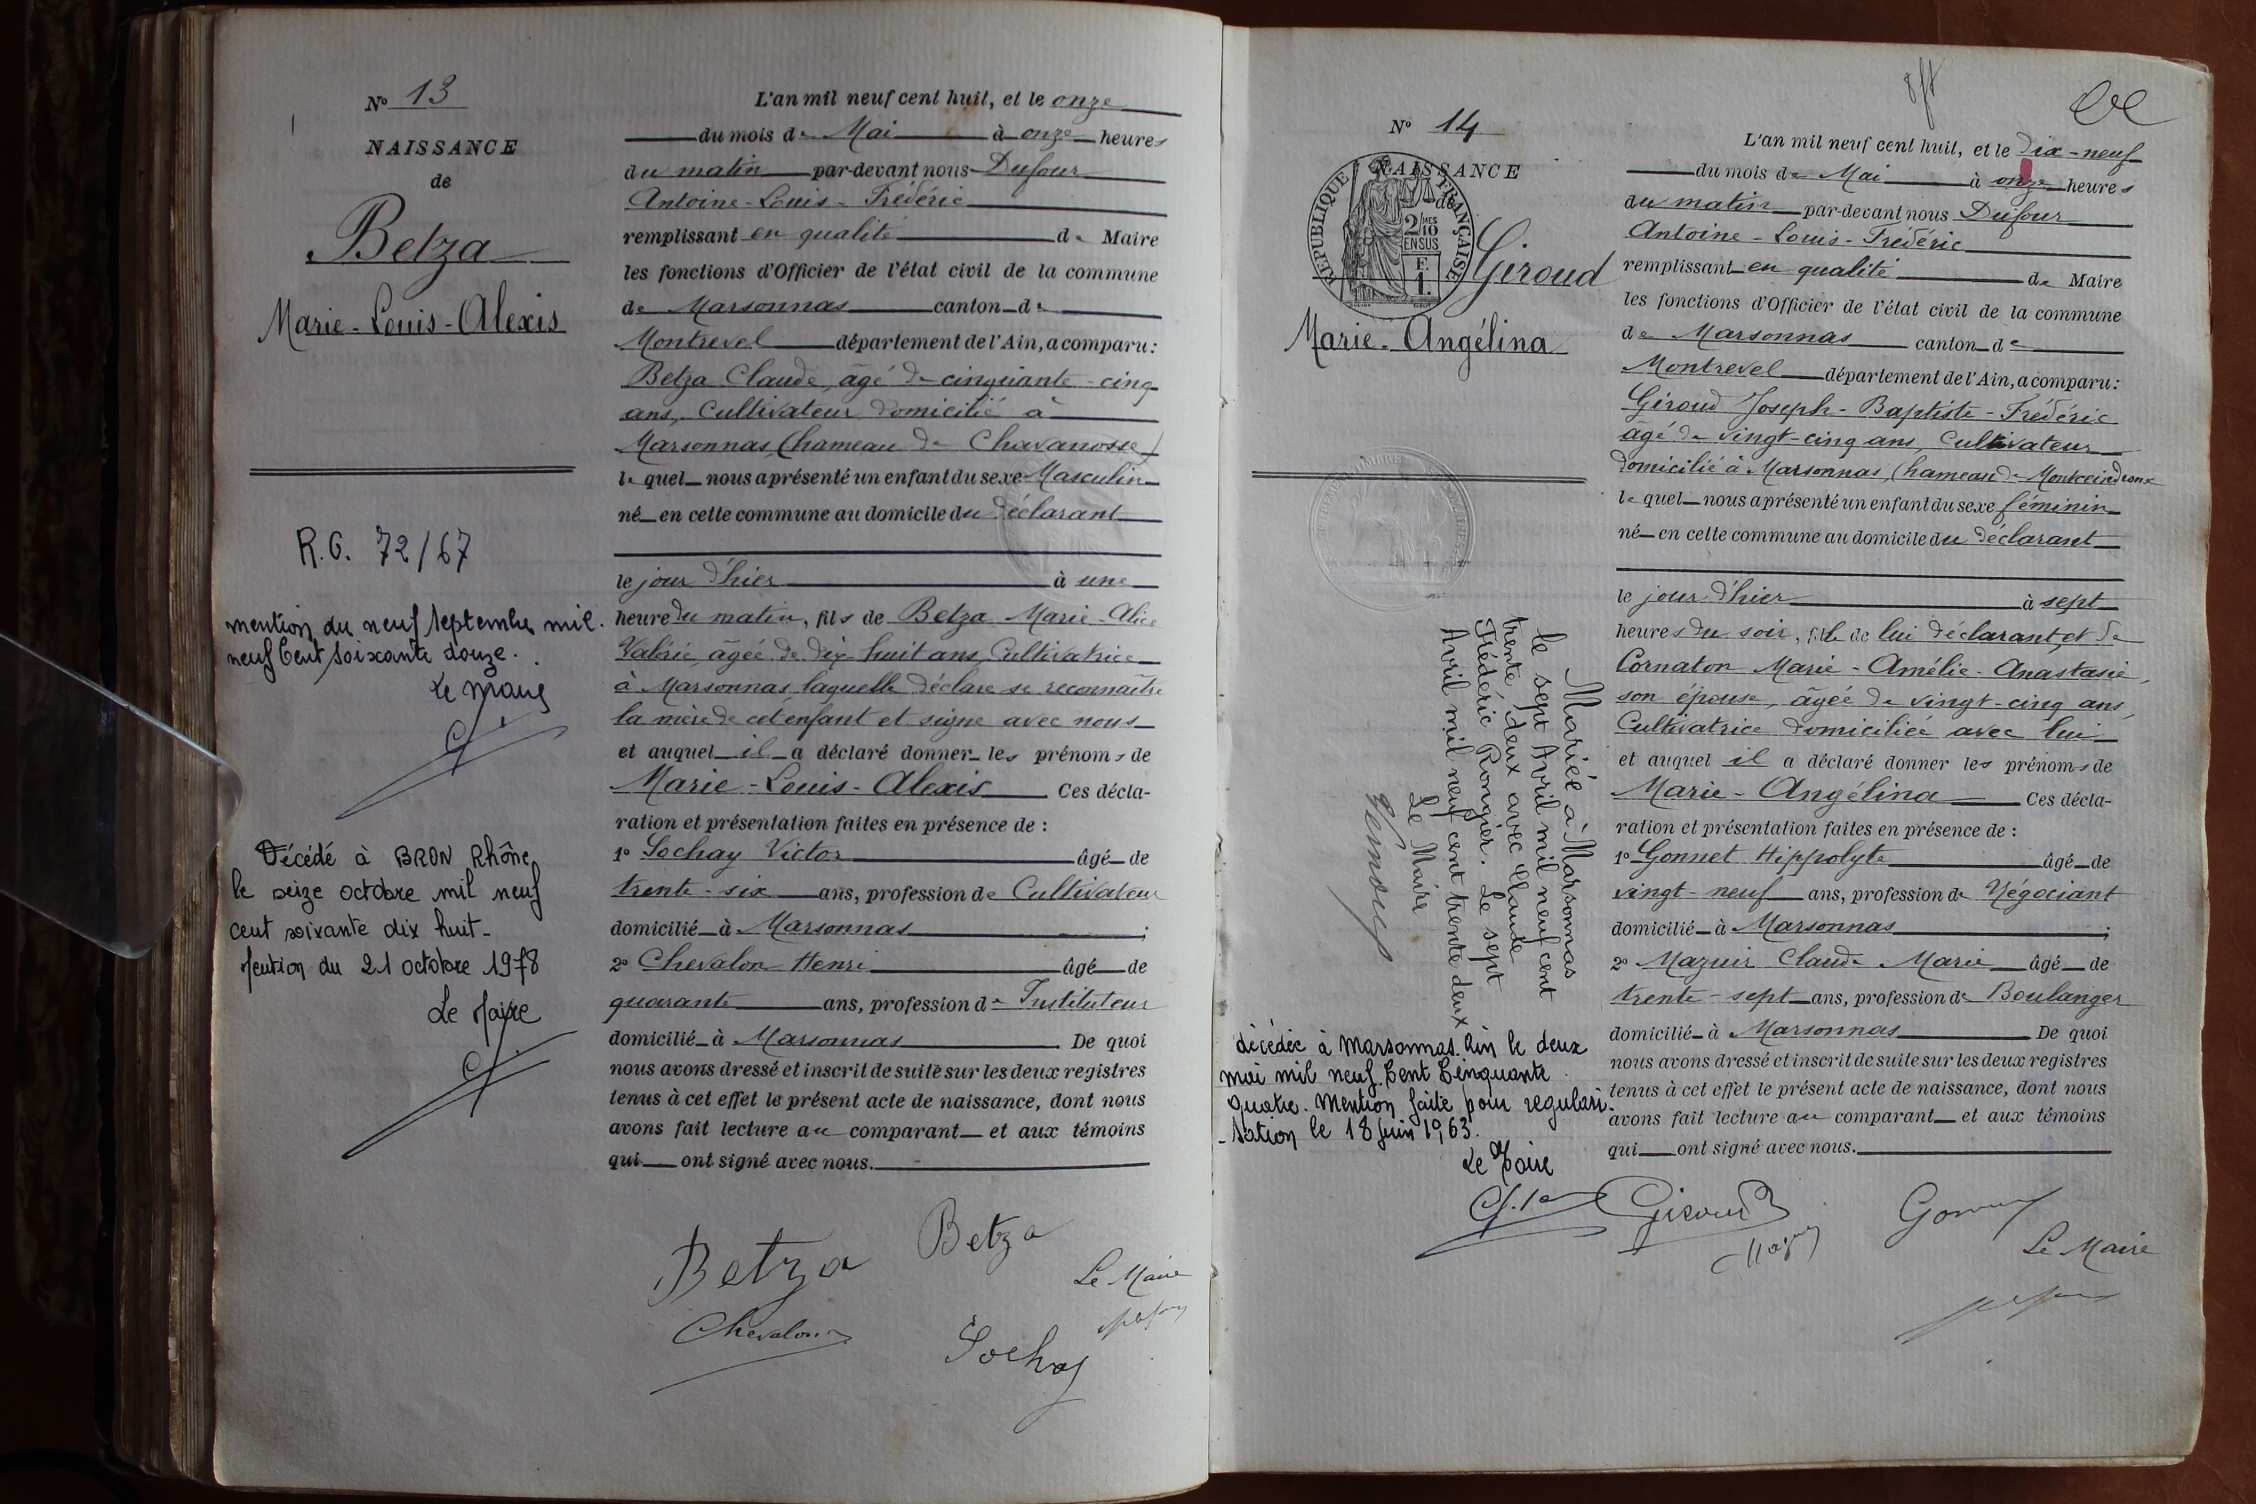 N° 13
NAISSANCE
de
Betza
Marie-Louis-Alexis
R.G. 72/67
mention du neuf septembre mil
neuf Cent soixante douze.
Le Maire
Décédé à BRON Rhône
le seize octobre mil neuf
cent soixante dix huit-
Mention du 21 octobre 1978
Le Maire
L'an mil neuf cent huit, et le onze
du mois de Mai à onze heures
du matin par-devant nous Dufour
Antoine-Louis-Frédéric
remplissant en qualité de Maire
les fonctions d'Officier de l'état civil de la commune
de Marsonnas canton de
Montrevel département de l'Ain, a comparu:
Betza Claude, âgé de cinquante-cinq
ans, Cultivateur domicilié à
Marsonnas (hameau de Chavanosse)
lequel nous a présenté un enfant du sexe Masculin
né en cette commune au domicile du déclarant
le jour d'hier à une
heure du matin, fils de Betza Marie-Alice
Valérie, âgée de dix-huit ans, Cultivatrice
à Marsonnas, laquelle déclare se reconnaître
la mère de cet enfant et signe avec nous
et auquel il a déclaré donner les prénoms de
Marie-Louis-Alexis Ces décla-
ration et présentation faites en présence de :
1° Sochay Victor âgé de
trente-six ans, profession de Cultivateur
domicilié à Marsonnas ;
2° Chevalon Henri âgé de
quarante ans, profession de Instituteur
domicilié à Marsonnas. De quoi
nous avons dressé et inscrit de suite sur les deux registres
tenus à cet effet le présent acte de naissance, dont nous
avons fait lecture au comparant et aux témoins
qui ont signé avec nous.
Betza Betza
Le Maire
Chevalon
Sochay
N° 14
NAISSANCE
de
REPUBLIQUE FRANÇAISE
2/10 MES
EN SUS
F.
1.
Giroud
Marie-Angélina
Mariée à Marsonnas
le sept Avril mil neuf cent
trente deux avec Claude
Frédéric Rongier. Le sept
Avril mil neuf cent trente deux
Le Maire
décédée à Marsonnas Ain le deux
mai mil neuf Cent Cinquante
quatre. Mention faite pour regulari-
-sation le 18 Juin 1963.
Le Maire
L'an mil neuf cent huit, et le dix-neuf
du mois de Mai à onze heures
du matin par-devant nous Dufour
Antoine-Louis-Frédéric
remplissant en qualité de Maire
les fonctions d'Officier de l'état civil de la commune
de Marsonnas canton de
Montrevel département de l'Ain, a comparu:
Giroud Joseph-Baptiste-Frédéric
âgé de vingt-cinq ans, Cultivateur
domicilié à Marsonnas, (hameau de
lequel nous a présenté un enfant du sexe féminin
né en cette commune au domicile du déclarant
le jour d'hier à sept
heures du soir, fille de lui déclarant, et de
Cornaton Marie-Amélie-Anastasie,
son épouse, âgée de vingt-cinq ans,
Cultivatrice domiciliée avec lui
et auquel il a déclaré donner les prénoms de
Marie-Angélina Ces décla-
ration et présentation faites en présence de :
1° Gonnet Hippolyte âgé de
vingt-neuf ans, profession de Négociant
domicilié à Marsonnas ;
2° Mazuir Claude Marie âgé de
trente-sept ans, profession de Boulanger
domicilié à Marsonnas De quoi
nous avons dressé et inscrit de suite sur les deux registres
tenus à cet effet le présent acte de naissance, dont nous
avons fait lecture au comparant et aux témoins
qui ont signé avec nous.
Giroud
Le Maire